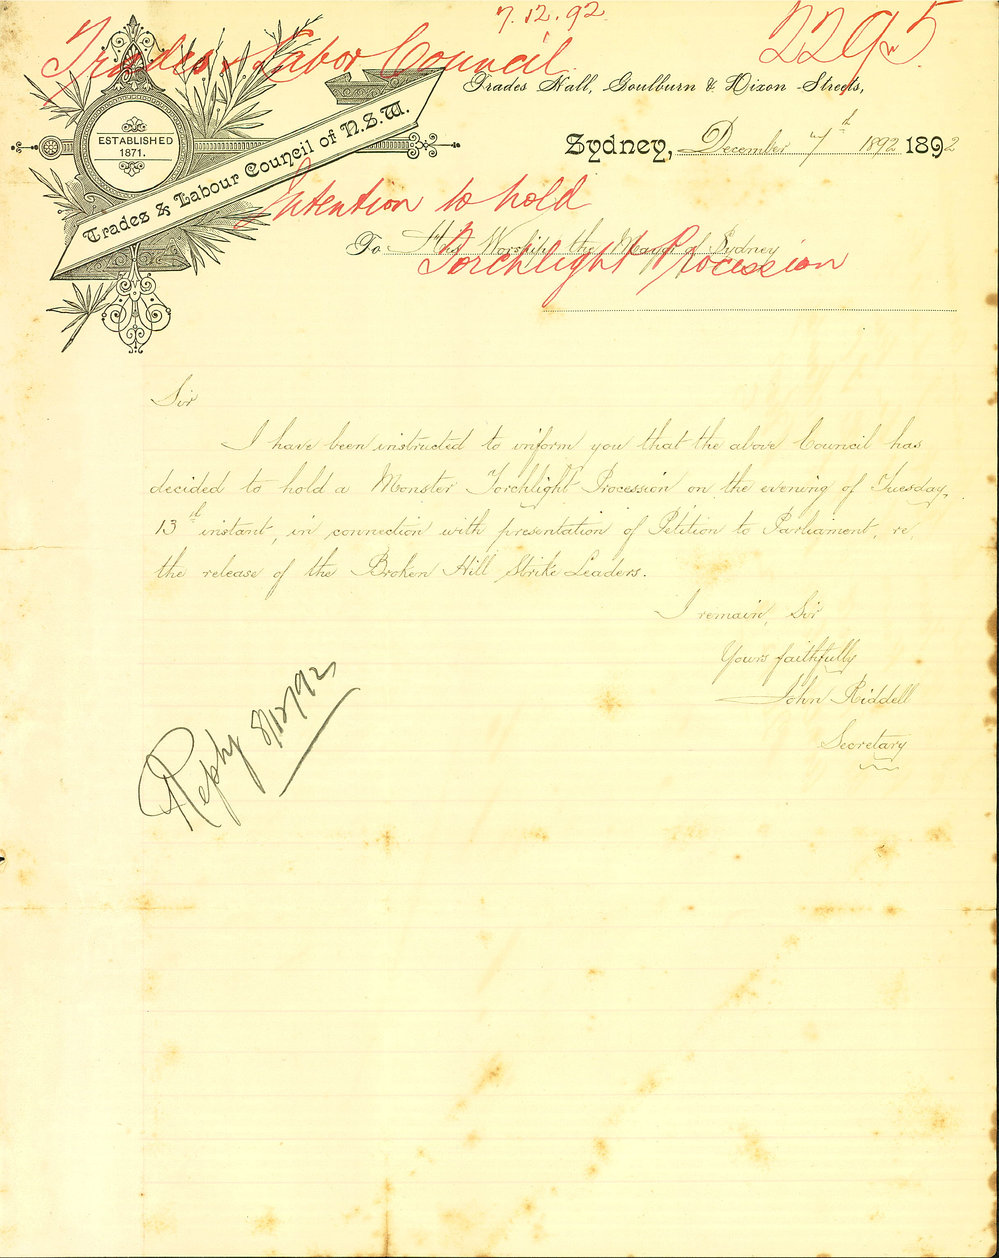 7.12.92
2295
Trades & Labor Council
Trades Hall, Goulburn & Dixon Streets,
ESTABLISHED
1871.
Trades & Labour Council of N.S.W.
Sydney, December 7th 1892 1892
Intention to hold
To His Worship the Mayor of Sydney
Torchlight Procession
Sir
I have been instructed to inform you that the above Council has
decided to hold a Monster Torchlight Procession on the evening of Tuesday,
13th instant, in connection with presentation of Petition to Parliament, re,
the release of the Broken Hill Strike Leaders.
I remain, Sir
Yours faithfully
John Riddell
Secretary
Reply 8/12/92